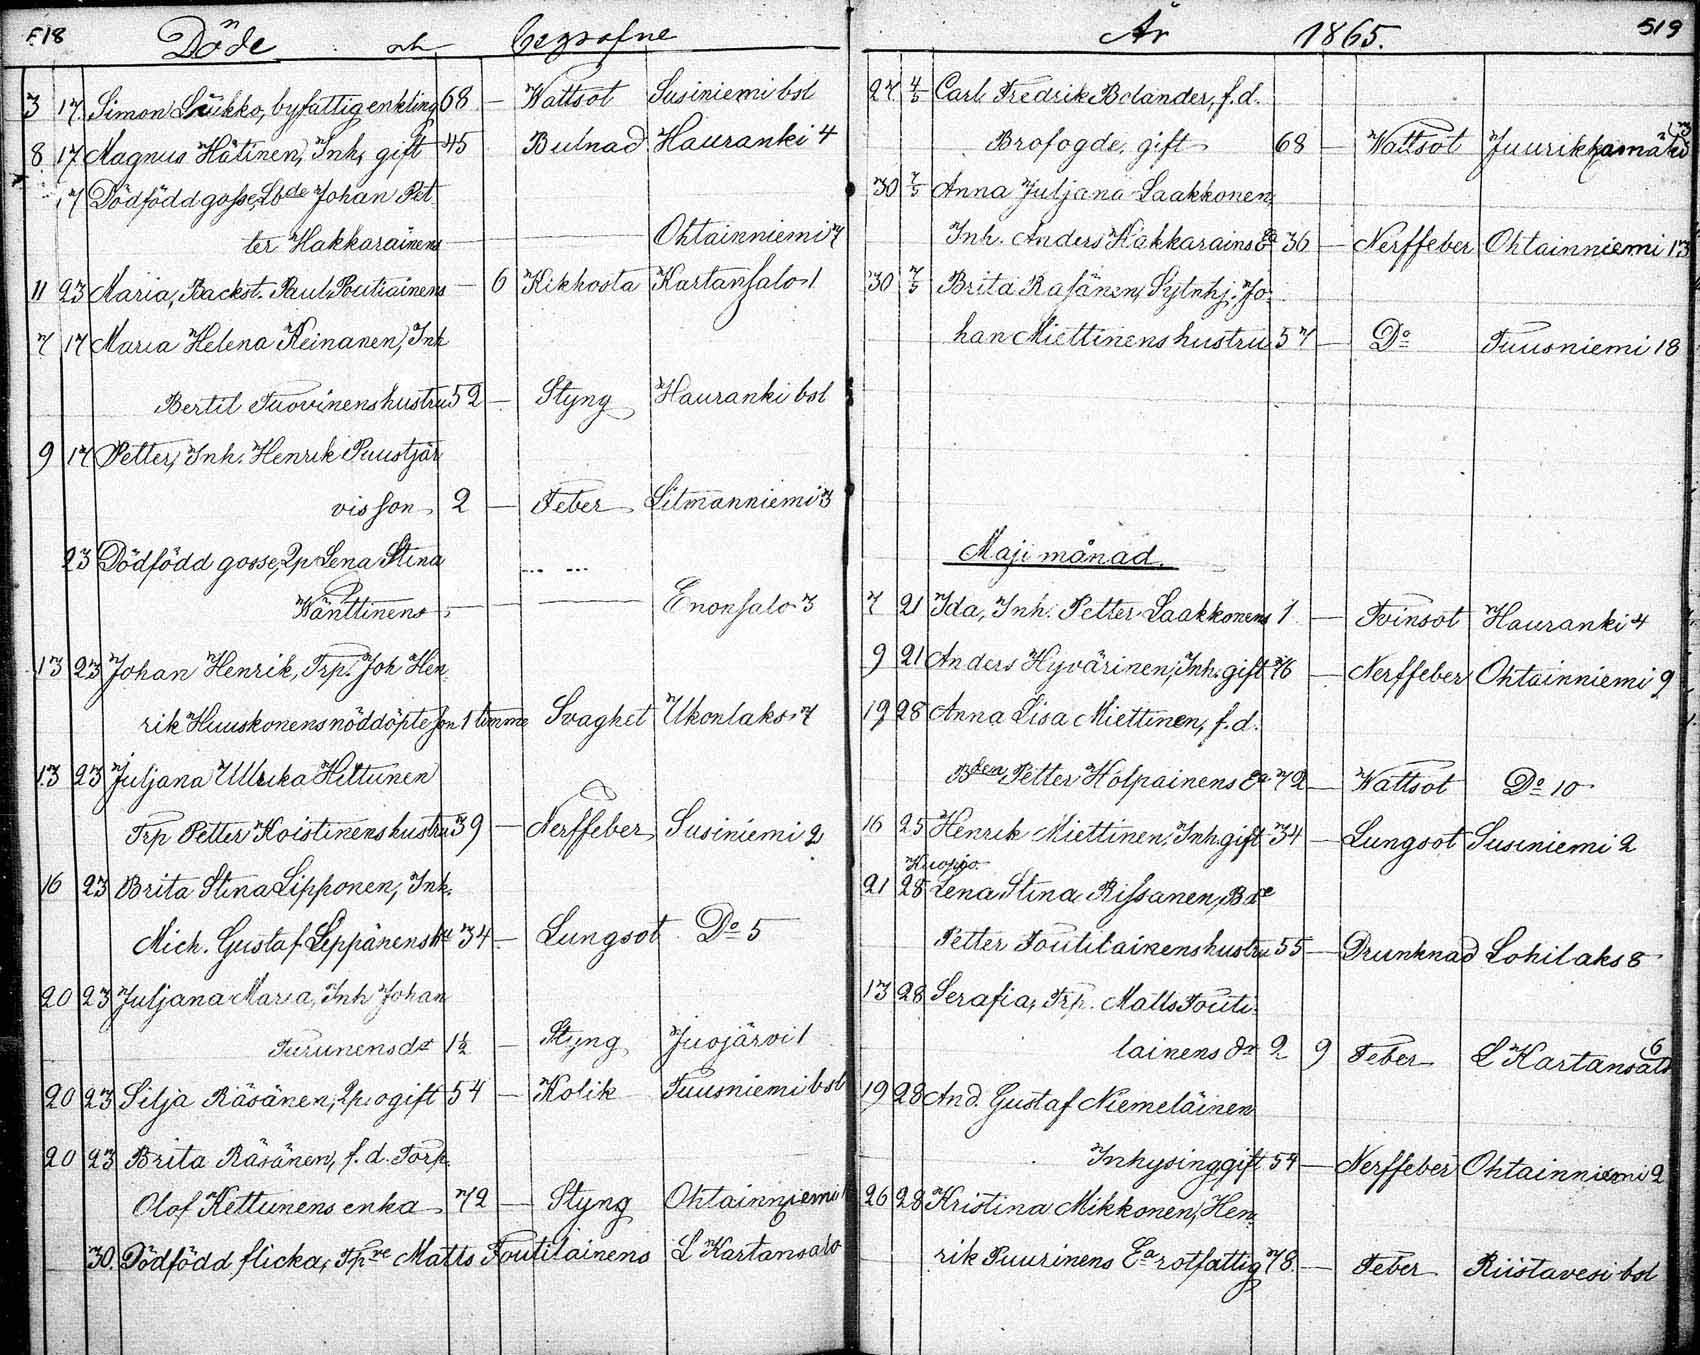 518 Döde och begrafne
3 17 Simon Liukko, byfattig enkling 68 — Wattsot Susiniemi bol
8 17 Magnus Hätinen, Inh, gift 45 Bulnad Hauranki 4
17 Dödfödd gosse, Lbde Johan Pet
ter Hakkarainens — — Ohtainniemi 7
11 23 Maria, Backst. Paul Poutiainens — 6 Kikhosta Kartansalo 1
7 17 Maria Helena Keinanen, Inh
Bertil Tuovinens hustru 52 — Styng Hauranki bol
9 17 Petter, Inh. Henrik Puustjär
vis son 2 — Feber Litmanniemi 3
23 Dödfödd gosse, 2p Lena Stina
Wänttinens — — Enonsalo 3
13 23 Johan Henrik, Trp. Joh Hen
rik Huuskonens nöddöpte son 1 timma Svaghet Ukonlaks 7
13 23 Juljana Ullrika Hiltunen
Trp Petter Koistinens hustru 39 — Nerffeber Susiniemi 2
16 23 Brita Stina Lipponen, Inh.
Mich. Gustaf Leppänens hu 34 — Lungsot Do 5
20 23 Juljana Maria, Inh Johan
Turunens dr 1½ — Styng Juojärvi 1
20 23 Silja Räsänen, 2p. ogift 54 — Kolik Tuusniemi bol
20 23 Brita Räsänen, f. d. Torp.
Olof Kettunens enka 72 — Styng Ohtainniemi
30. Dödfödd flicka, Tpre Matts Toutilainens L Kartansalo
År 1865. 519
27 4/5 Carl Fredrik Bolander, f. d.
Brofogde, gift 68 — Wattsot Juurikkamäki 3
30 7/5 Anna Juljana Laakkonen
Inh. Anders Hakkarains Ea 36 — Nerffeber Ohtainniemi 13
30 7/5 Brita Rasänen, Sytnhj. Jo
han Miettinens hustru 57 — Do Tuusniemi 18
Maji månad.
7 21 Ida, Inh. Petter Laakkonens 1 — Tvinsot Hauranki 4
9 21 Anders Hyvärinen, Inh. gift 76 — Nerffeber Ohtainniemi 9
19 28 Anna Lisa Miettinen, f. d.
Bden Petter Holpainens Ea 72 — Wattsot Do 10
16 25 Henrik Miettinen, Inh gift 34 — Lungsot Susiniemi 2
Kuopio
21 28 Lena Stina Rissanen, Bde
Petter Toutilainens hustru 55 — Drunknad Lohilaks 8
13 28 Serafia, Trp. Matts Touti
lainens dr 2 9 Feber L Kartansalo 6
19 28 And. Gustaf Niemeläinen
Inhysing gift 54 — Nerffeber Ohtainniemi 2
26 28 Kristina Mikkonen, Hen
rik Puurinens Ea rotfattig 78 — Feber Riistavesi bol